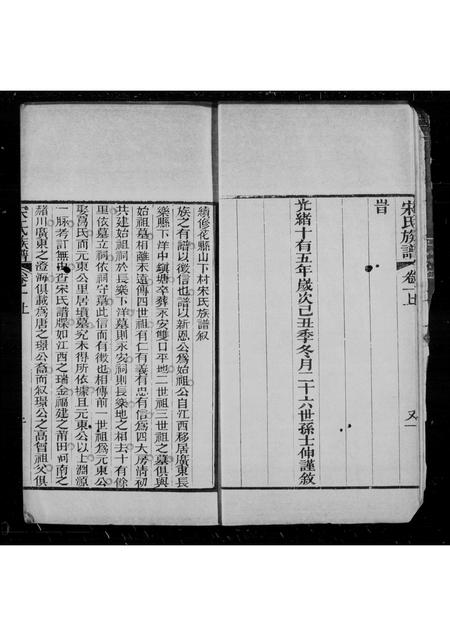 宋氏族譜 卷一上 又一
旹
光緒十有五年歲次己丑季冬月二十六世孫士伸謹敘
續修花縣山下材宋氏族譜叙
族之有譜以徵信也譜以新恩公為始祖公自江西移居廣東長
樂縣下洋中鎮塘卒葬永安雙口平地二世祖三世祖之墓俱與
始祖墓相離未遠傳四世祖有仁有義有忠有信為四大房清初
共建始祖祠於長樂下洋墓則永安祠則長樂地之相去十有餘
里依墓立祠依祠守墓此信而有徵也相傳前一世祖為元東公
娶萬氏而元東公里居墳墓究未得所依據且元東公以上淵源
一脉考訂無由查宋氏譜牒如江西之瑞金福建之莆田河南之
緒川廣東之澄海俱載為唐之璟公裔而叙璟公之高曾祖父俱
宋氏族譜 卷一上